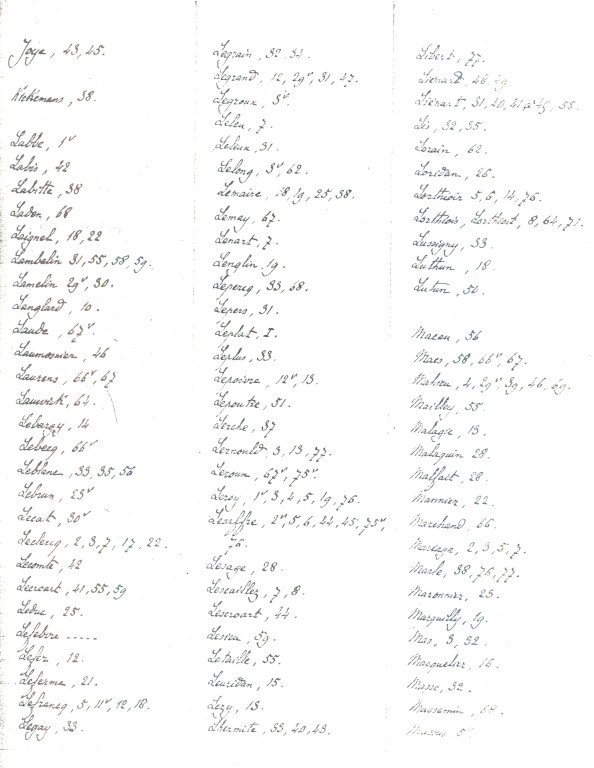 Joye, 43, 45.
Kickemans, 38.
Labbe, 1v
Labis, 42
Labitte, 38
Laden, 68
Laignel, 18, 22
Lambelin 31, 55, 58, 59.
Lamelin 29v, 30.
Langlard, 10.
Laude, 67v.
Laumosnier, 46
Laurens, 66v, 67
Lauwick, 64.
Lebargy, 14
Lebecq, 66v
Leblanc, 33, 35, 56
Lebrun, 23v
Lecat, 30v
Leclercq, 2, 3, 7, 17, 22.
Lecomte, 42
Lecroart, 41, 55, 59
Leduc, 25.
Lefebvre -----
Lefez, 12.
Leferme, 21.
Lefrancq, 5, 11v, 12, 18.
Legay, 33.
Legrain, 32, 34.
Legrand, 12, 29v, 31, 47.
Legroux, 3v.
Leleu, 7.
Leleux, 31.
Lelong, 3v, 62.
Lemaire, 18, 19, 25, 38.
Lemay, 67.
Lenart, 7.
Lenglin, 19.
Lepercq, 33, 68.
Lepers, 31.
Leplat, I.
Leplus, 33.
Lepoivre, 12v, 13.
Lepoutre, 51.
Lerche, 37
Lernould, 3, 13, 77.
Leroux, 67v, 75v.
Leroy, 1v, 3, 4, 5, 19, 76.
Lesaffre, 2v, 5, 6, 44, 45, 75v,
76.
Lesage, 28.
Lescaillez, 7, 8.
Lescroart, 44.
Lesieu, 59.
Letaille, 55.
Leuridan, 15.
Lezy, 13.
Lhermite, 33, 40, 43.
Libert, 77.
Lienard, 48, 49.
Liénart, 31, 40, 41 à 45, 55.
Lis, 32, 35.
Lorain, 62.
Loridan, 26.
Lorthioir 5, 6, 14, 76.
Lorthiois, Lorthioit, 8, 64, 71.
Lussigny, 33.
Luthun, 18.
Lutun, 50.
Macau, 56
Maes, 58, 66v, 67.
Mahieu, 4, 29v, 39, 46, 69.
Mailley, 55.
Malagie, 13.
Malaquin 28.
Malfait, 28.
Mannier, 22.
Marchand, 66.
Mariage, 2, 3, 5, 7.
Marle, 38, 76, 77.
Maronnier, 25.
Marquilly, 19.
Mas, 3, 52.
Masquelier, 16.
Masse, 32.
Massemin, 68.